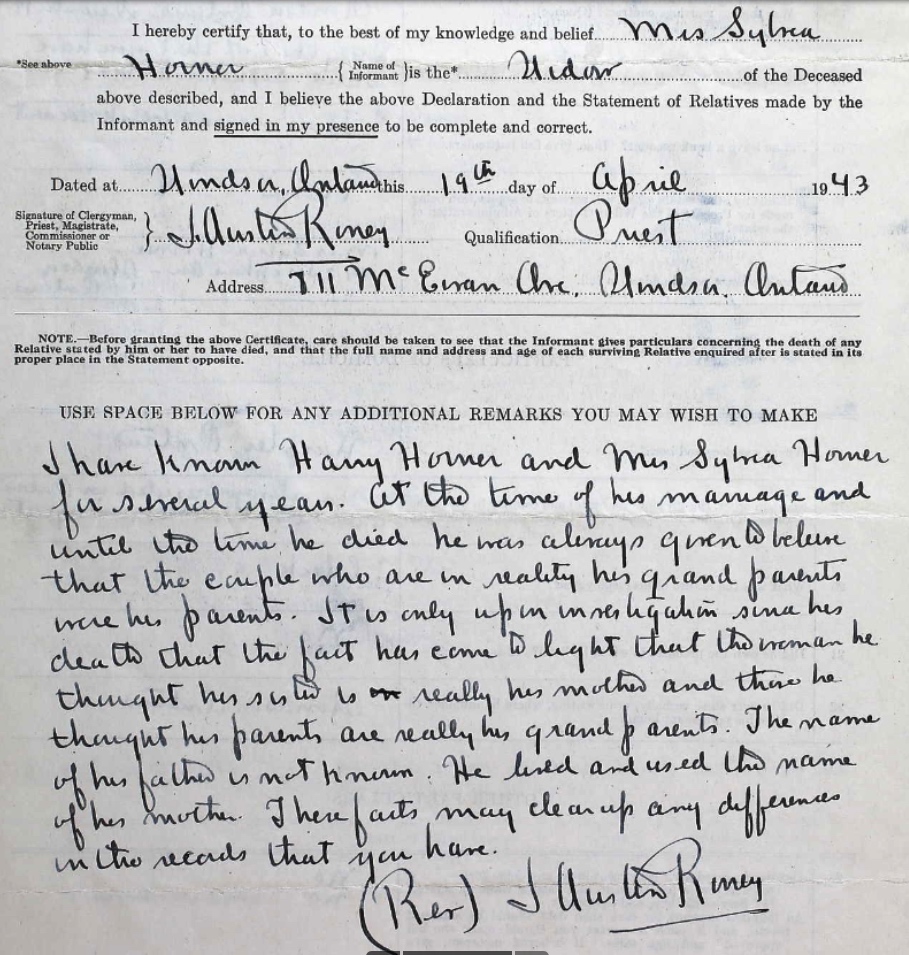 I hereby certify that, to the best of my knowledge and belief Mrs Sylvia
*See above Horner { Name of Informant } is the* Widow of the Deceased
above described, and I believe the above Declaration and the Statement of Relatives made by the
Informant and signed in my presence to be complete and correct.
Dated at Windsor, Ontario this 19th day of April 1943
Signature of Clergyman,
Priest, Magistrate,
Commissioner or
Notary Public
} J. Austin Roney Qualification Priest
Address 711 McEwan Ave, Windsor, Ontario
NOTE.—Before granting the above Certificate, care should be taken to see that the Informant gives particulars concerning the death of any
Relative stated by him or her to have died, and that the full name and address and age of each surviving Relative enquired after is stated in its
proper place in the Statement opposite.
USE SPACE BELOW FOR ANY ADDITIONAL REMARKS YOU MAY WISH TO MAKE
I have known Harry Horner and Mrs Sylvia Horner
for several years. At the time of his marriage and
until the time he died he was always given to believe
that the couple who are in reality his grand parents
were his parents. It is only upon investigation since his
death that the fact has come to light that the woman he
thought his sister is really his mother and those he
thought his parents are really his grand parents. The name
of his father is not known. He lived and used the name
of his mother. These facts may clear up any differences
in the records that you have.
(Rev) J Austin Roney